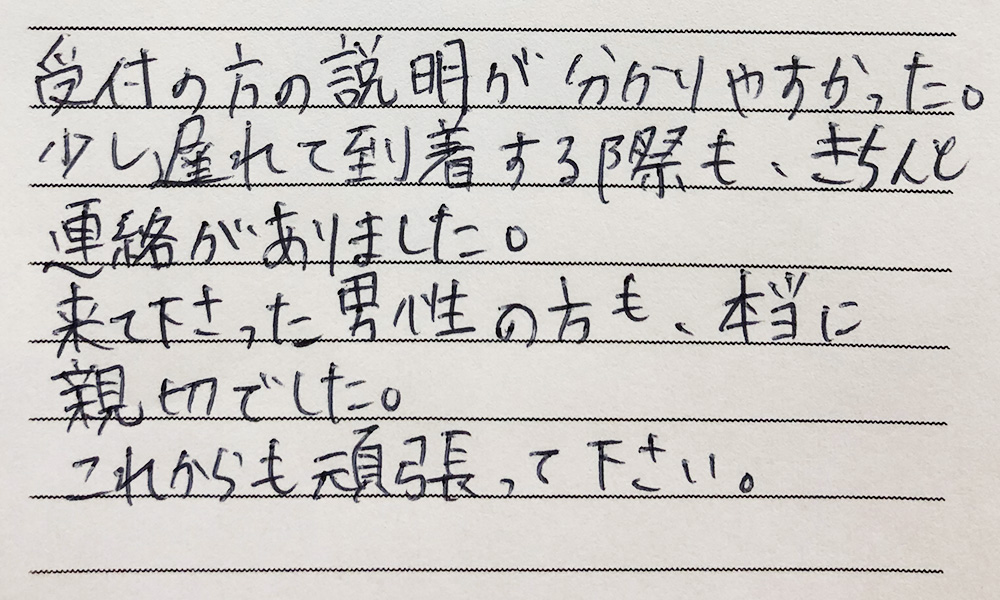 受付の方の説明が分かりやすかった。
少し遅れて到着する際も、きちんと
連絡がありました。
来て下さった男性の方も、本当に
親切でした。
これからも頑張って下さい。